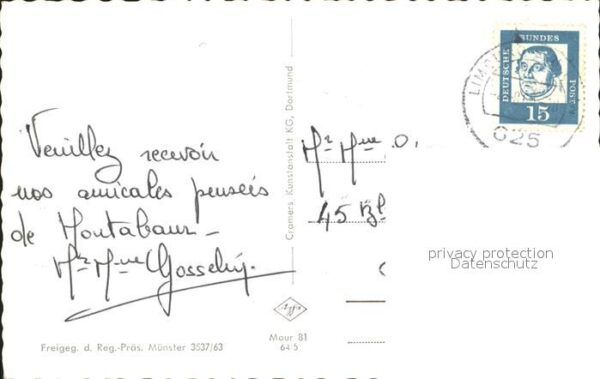 Veuillez recevoir
nos amicales pensées
de Montabaur -
Mr Mme Gosselin.
Freigeg. d. Reg.-Präs. Münster 3537/63
Cramers Kunstanstalt KG, Dortmund
Agfa
Maur 81
64 5
Mr Mme O.
45 Bl
DEUTSCHE
BUNDES
POST
15
LIMBURG
625
privacy protection
Datenschutz